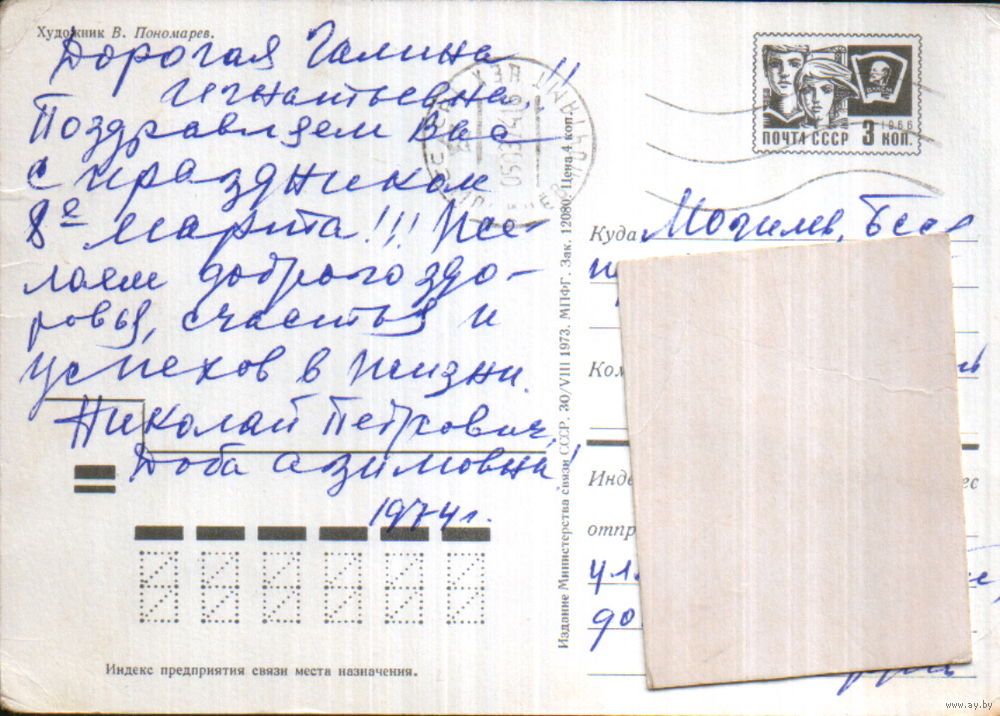 Художник В. Пономарев.
Дорогая Галина
Игнатьевна!!
Поздравляем Вас
с праздником
8е марта!!! Же-
лаем доброго здо-
ровья, счастья и
успехов в жизни.
Николай Петрович,
Доба Азимовна!
1974 г.
Индекс предприятия связи места назначения.
Издание Министерства связи СССР. 30/VIII 1973. МПФГ. Зак. 12080. Цена 4 коп.
ВЛКСМ
1966
ПОЧТА СССР 3 КОП.
Куда Могилев,
Ком
Инде
отпр
ул
до
www.ay.by